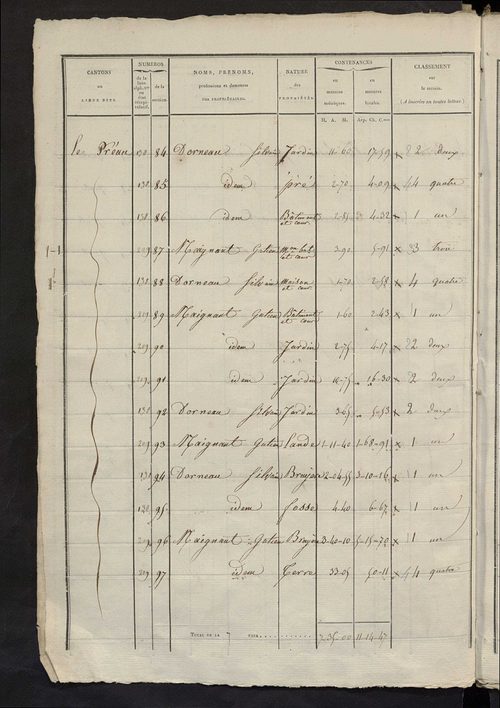 CANTONS ou LIEUX DITS.
NUMÉROS
de la section.
NOMS, PRÉNOMS, professions et demeures DES PROPRIÉTAIRES.
NATURE des PROPRIÉTÉS.
CONTENANCES
en mesures métriques.
en mesures locales.
CLASSEMENT sur le terrain. (A inscrire en toutes lettres.)
H. A. M. Arp. Ch. C.
le Préau 130 84 Dorneau Silvain Jardin 11-60 17-59 × 2 deux
130 85 idem pré 2-70 4-09 × 4 quatre
130 86 idem Bâtiment et cour 4-32 × 1 un
209 87 Maignant Gatien et cour 3-90 5-91 × 3 trois
130 88 Dorneau Silvain maison et cour 1-70 2-58 × 4 quatre
209 89 Maignant Gatien Bâtiment et cour 1-60 2-43 × 1 un
209 90 idem Jardin 2-75 4-17 × 2 deux
209 91 idem Jardin 10-75 16-30 × 2 deux
130 92 Dorneau Silvain Jardin 3-65 5-53 × 2 deux
209 93 Maignant Gatien Lande 1-11-40 1-68-91 × 1 un
130 94 Dorneau Silvain Bruyère 2-04-55 3-10-16 × 1 un
130 95 idem fosse 4-40 6-67 × 1 un
209 96 Maignant Gatien Bruyère 3-40-10 5-15-70 × 1 un
209 97 idem Terre 33-05 50-11 × 4 quatre
TOTAL DE LA 7 11-14-47